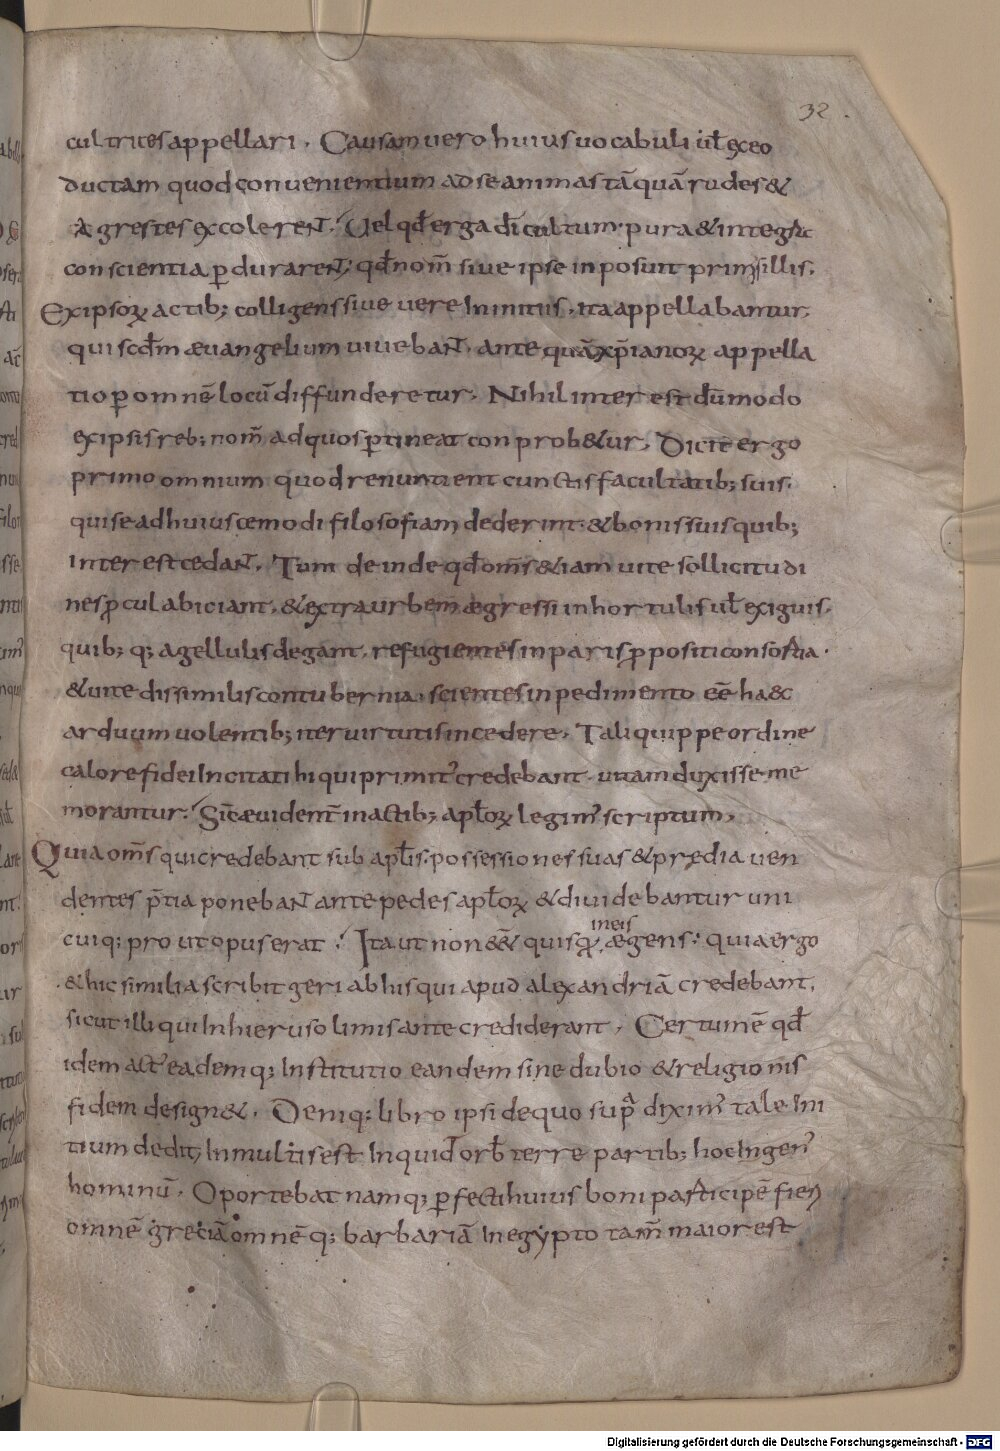 32
cultrices appellari. Causam vero huius uocabuli ul̄ exeo
ductam quod conuenientium ad se animas tāquā rudes &
Agrestes excolerent. Uel qđ erga dī cultum pura & integra
conscientia ꝑdurarent; qđ nom̄ siue ipse inposuit primis illis.
Ex ipsoꝝ actib; colligens siue uere In initiis, ita appellabantur,
qui scđm æuangelium uiuebant. ante quā xp̄ianoꝝ appella
tio ꝑ omnē locū diffunderetur. Nihil interest dūmodo
ex ipsis reb; nom̄ ad quos ꝑtineat conprob&ur. Dicit ergo
primo omnium quod renuntient cunctis facultatib; suis.
qui se ad huiuscemodi filosofiam dederint. & bonis suis quib;
Interest cedant. Tum deinde qđ om̄s &iam uite sollicitudi
nes ꝓcul abiciant. & extra urbem ægressi in hortulis ul̄ exiguis.
quib; q; agellulis degant, refugientes inparis ꝓpositi consortia.
& uite dissimilis contubernia. scientes inpedimento eē hæc
arduum uolentib; iter uirtutis incedere. Tali quippe ordine
calore fidei Incitati hi qui primit' credebant uitam duxisse me
morantur. Sic & æuident̄ in actib; apl̄oꝝ legim' scriptum,
Quia om̄s qui credebant sub apl̄is. possessiones suas & prędia uen
dentes p̄tia ponebant ante pedes apl̄oꝝ & diuidebantur uni
cuiq; prout opus erat. Ita ut non eēt quisq̄ in eis ægens. quia ergo
& hic similia scribit geri ab his qui apud alexandriā credebant,
sicut illi qui In hierusolimis ante crediderant. Certum ē qđ
idem act' eademq; Institutio eandem sine dubio & religionis
fidem design&. Deniq; libro ipsi de quo supra dixim' tale Ini
tium dedit, In multis est Inquid orb̄ terre partib; hoc Ingen'
hominū. Oportebat namq; ꝑfecti huius boni participē fieri
omnē greciā omnēq; barbariā In egypto tam̄ maior est
Digitalisierung gefördert durch die Deutsche Forschungsgemeinschaft - DFG